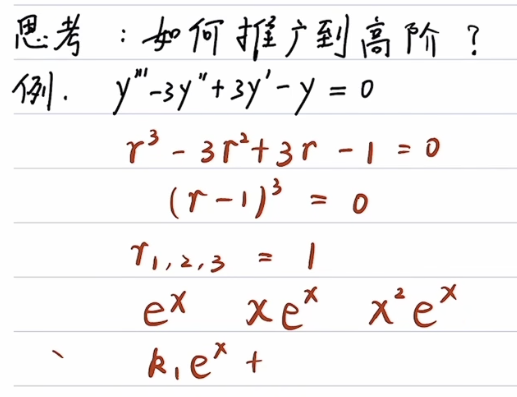 思考：如何推广到高阶？
例. y''' - 3y'' + 3y' - y = 0
r³ - 3r² + 3r - 1 = 0
(r - 1)³ = 0
r₁,₂,₃ = 1
eˣ xeˣ x²eˣ
k₁eˣ +